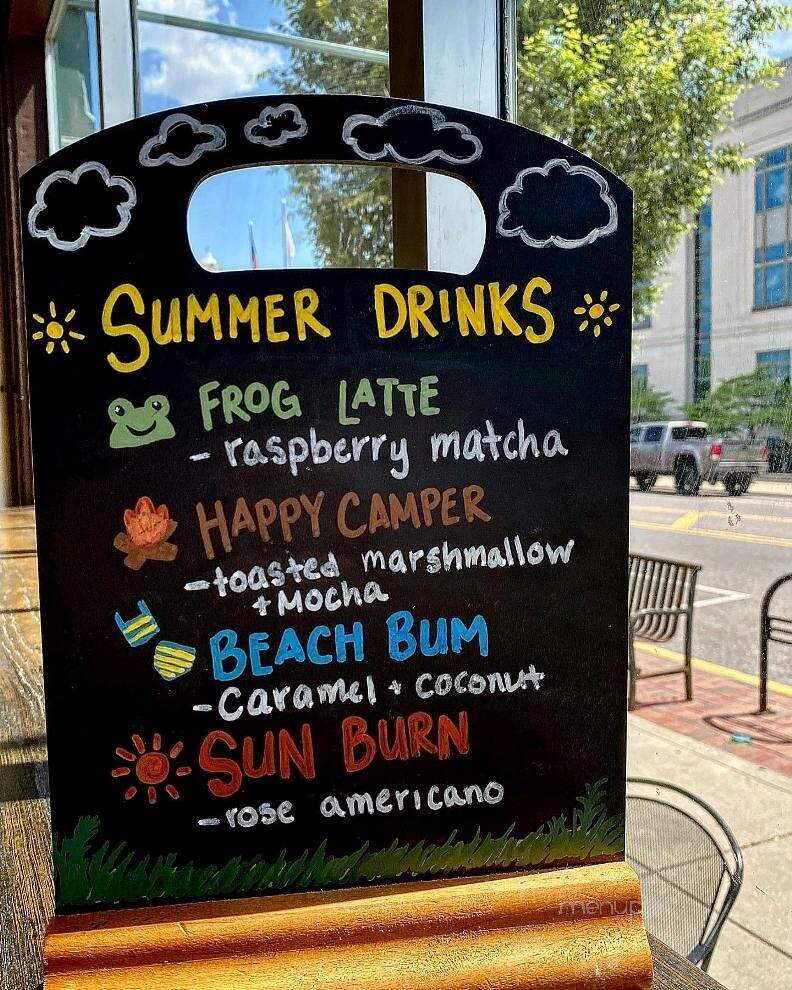 SUMMER DRINKS
FROG LATTE
- raspberry matcha
HAPPY CAMPER
- toasted marshmallow
+ Mocha
BEACH BUM
- Caramel + coconut
SUN BURN
- rose americano